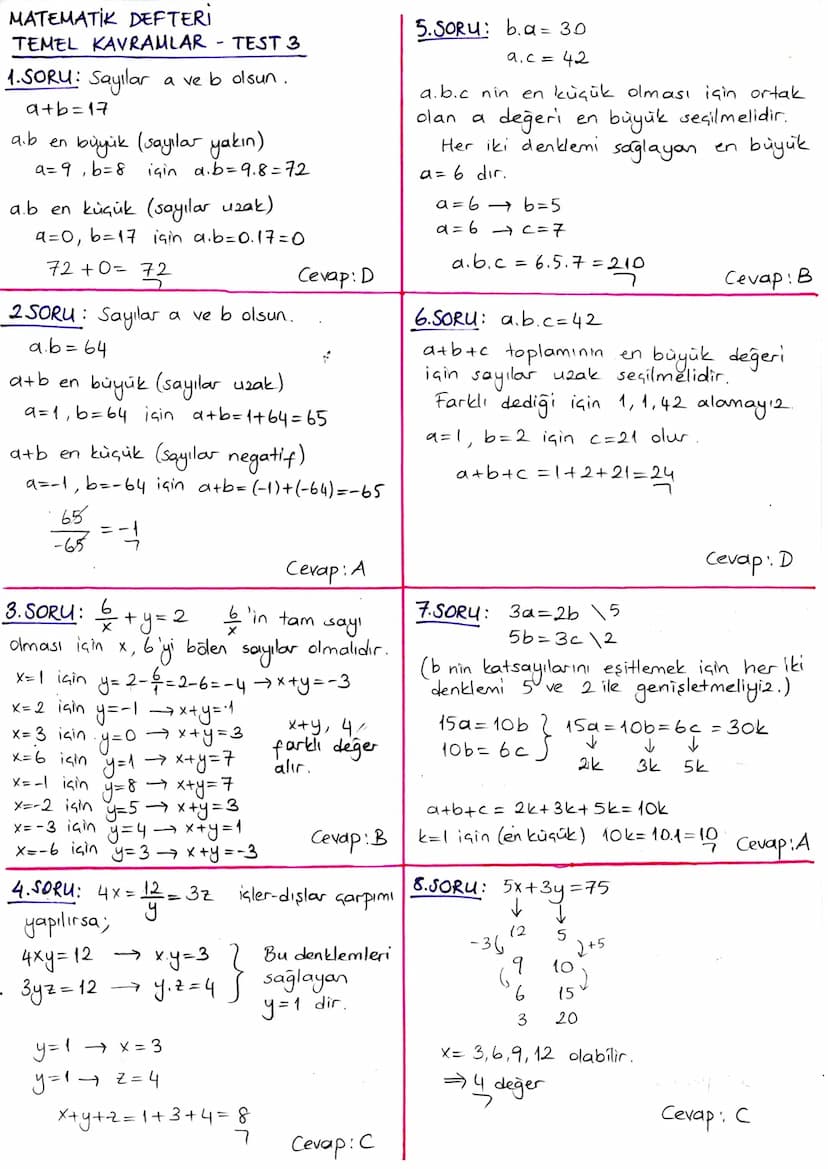 MATEMATİK DEFTERİ
TEMEL KAVRAMLAR - TEST 3
1.SORU: Sayılar a ve b olsun.
a+b=17
a.b en büyük (sayılar yakın)
a=9, b=8 için a.b=9.8=72
a.b en küçük (sayılar uzak)
a=0, b=17 için a.b=0.17=0
72+0=72
Cevap: D
2.SORU: Sayılar a ve b olsun.
a.b=64
a+b en büyük (sayılar uzak)
a=1, b=64 için a+b=1+64=65
a+b en küçük (sayılar negatif)
a=-1, b=-64 için a+b=(-1)+(-64)=-65
65/-65 = -1
Cevap: A
3.SORU: 6/x + y = 2 6/x 'in tam sayı
olması için x, 6'yi bölen sayılar olmalıdır.
x=1 için y=2-6/1=2-6=-4 → x+y=-3
x=2 için y=-1 → x+y=1
x=3 için y=0 → x+y=3
x=6 için y=1 → x+y=7
x=-1 için y=8 → x+y=7
x=-2 için y=5 → x+y=3
x=-3 için y=4 → x+y=1
x=-6 için y=3 → x+y=-3
x+y, 4
farklı değer
alır.
Cevap: B
4.SORU: 4x=12/y=3z içler-dışlar çarpımı
yapılırsa;
4xy=12 → x.y=3
3yz=12 → y.z=4
Bu denklemleri
sağlayan
y=1 dir.
y=1 → x=3
y=1 → z=4
x+y+z=1+3+4=8
Cevap: C
5.SORU: b.a=30
a.c=42
a.b.c nin en küçük olması için ortak
olan a değeri en büyük seçilmelidir.
Her iki denklemi sağlayan en büyük
a=6 dır.
a=6 → b=5
a=6 → c=7
a.b.c=6.5.7=210
Cevap: B
6.SORU: a.b.c=42
a+b+c toplamının en büyük değeri
için sayılar uzak seçilmelidir.
Farklı dediği için 1,1,42 alamayız.
a=1, b=2 için c=21 olur.
a+b+c=1+2+21=24
Cevap: D
7.SORU: 3a=2b \5
5b=3c \2
(b nin katsayılarını eşitlemek için her iki
denklemi 5 ve 2 ile genişletmeliyiz.)
15a=10b } 15a=10b=6c=30k
10b=6c
↓ ↓ ↓
2k 3k 5k
a+b+c=2k+3k+5k=10k
k=1 için (en küçük) 10k=10.1=10
Cevap: A
8.SORU: 5x+3y=75
↓ ↓
12 5
-3 +5
9 10
6 15
3 20
x=3,6,9,12 olabilir.
⇒ 4 değer
Cevap: C